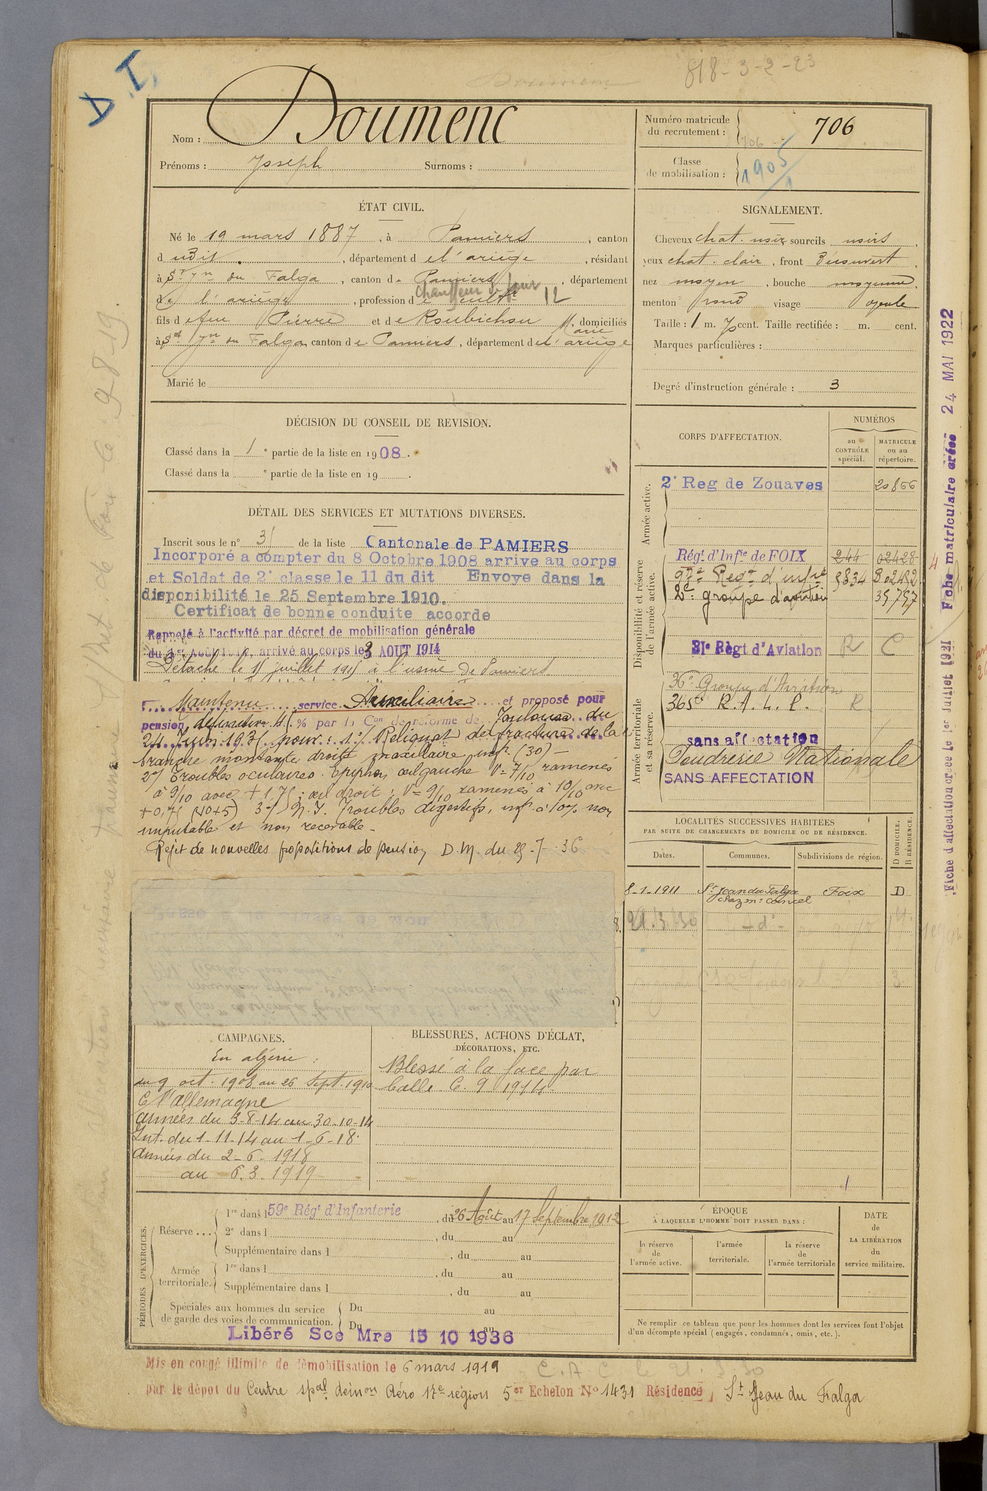 D. I.
818-3-2-23
Nom : Doumenc
Prénoms : Joseph Surnoms :
Numéro matricule du recrutement : 706
Classe de mobilisation : 1905
ÉTAT CIVIL.
Né le 19 mars 1887, à Pamiers, canton
dudit, département de l'ariège, résidant
à St Jn du Falga, canton de Pamiers, département
de l'ariège, profession de
Chauffeur de four 12
fils de feu Pierre et de Roubichou Marie domiciliés
à St Jn du Falga canton de Pamiers, département de l'ariège
Marié le
SIGNALEMENT.
Cheveux chat. noir sourcils noirs
yeux chat. clair, front Découvert
nez moyen, bouche moyenne
menton rond visage ovale
Taille : 1 m. 70 cent. Taille rectifiée : m. cent.
Marques particulières :
Degré d'instruction générale : 3
DÉCISION DU CONSEIL DE REVISION.
Classé dans la 1e partie de la liste en 1908.
Classé dans la e partie de la liste en 19
DÉTAIL DES SERVICES ET MUTATIONS DIVERSES.
Inscrit sous le n° 31 de la liste Cantonale de PAMIERS
Incorporé à compter du 8 Octobre 1908 arrivé au corps
et Soldat de 2e classe le 11 du dit Envoyé dans la
disponibilité le 25 Septembre 1910.
Certificat de bonne conduite accordé
Rappelé à l'activité par décret de mobilisation générale
du 1er Août 1914, arrivé au corps le 3 AOUT 1914
Détaché le 15 juillet 1915 à l'usine de Pamiers
Maintenu service Auxiliaire et proposé pour
pension définitive 15% par la Con de réforme de Toulouse du
24 Juin 1935 pour : 1°/ Reliquat de fracture de la
branche montante droite maxillaire inf. (30) –
2°/ Troubles oculaires. Epiphora œil gauche V = 7/10 ramenés
à 9/10 avec + 1,75 ; œil droit : V = 9/10 ramenés à 10/10 avec
+ 0,75 (10+5) 3°/ N. I. Troubles digestifs, inf. à 10% non
imputable et non recevable.
Rejet de nouvelles propositions de pension D.M. du 29-7-36
CORPS D'AFFECTATION.
NUMÉROS
au CONTRÔLE spécial.
MATRICULE ou au répertoire.
Armée active.
2e Reg de Zouaves 20866
Disponibilité et réserve de l'armée active.
Régt d'Infie de FOIX 244 02428
Regt d'infie
2e groupe d'aviation 35,757
31e Régt d'Aviation R C
Armée territoriale et sa réserve.
36e Groupe d'Aviation
365e R. A. L. P. R
sans affectation
Poudrerie Nationale
SANS AFFECTATION
LOCALITÉS SUCCESSIVES HABITÉES
PAR SUITE DE CHANGEMENTS DE DOMICILE OU DE RÉSIDENCE.
Dates. Communes. Subdivisions de région. D DOMICILE. R RÉSIDENCE.
8-1-1911 St Jean du Falga Foix D
21.3.30 -d°-
CAMPAGNES.
En algérie :
du 9 oct. 1908 au 26 Sept. 1910
C l'allemagne
armées du 3-8-14 au 30-10-14
Int. du 1-11-14 au 1-6-18
armées du 2-6-1918
au 6.3.1919
BLESSURES, ACTIONS D'ÉCLAT, DÉCORATIONS, ETC.
Blessé à la face par
balle. C. 9 1914.
PÉRIODES D'EXERCICES.
Réserve... 1re dans l 59e Régt d'Infanterie, du 26 Août au 17 Septembre 1912
2e dans l , du au
Supplémentaire dans l , du au
Armée territoriale. 1re dans l , du au
Supplémentaire dans l , du au
Spéciales aux hommes du service de garde des voies de communication. Du au
Du au
Libéré Sce Mre 15 10 1936
ÉPOQUE
À LAQUELLE L'HOMME DOIT PASSER DANS :
la réserve de l'armée active.
l'armée territoriale.
la réserve de l'armée territoriale
DATE de LA LIBÉRATION du service militaire.
Ne remplir ce tableau que pour les hommes dont les services font l'objet
d'un décompte spécial (engagés, condamnés, omis, etc.).
Mis en congé illimité de démobilisation le 6 mars 1919
par le dépot du Centre spal démon Aéro 17e région 5er Echelon N° 1431 Résidence St Jean du Falga
Fiche d'affectation créée le 1er Juillet 1921 Fiche matriculaire créée 24 MAI 1922